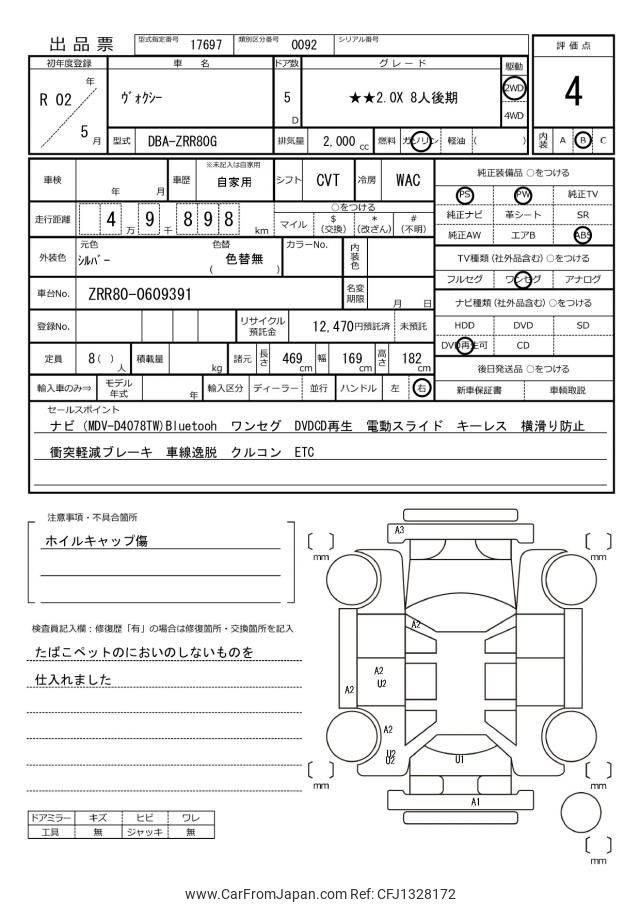 出品票 型式指定番号 17697 類別区分番号 0092 シリアル番号
評価点
4
内装 A B C
初年度登録 車名 ドア数 グレード 駆動
R 02 年 / 5 月
ヴォクシー 5 D ★★2.0X 8人後期 2WD
4WD
型式 DBA-ZRR80G 排気量 2,000 cc 燃料 ガソリン 軽油 ( )
車検 年 月 車歴 ※未記入は自家用 自家用 シフト CVT 冷房 WAC
走行距離 4 万 9 千 8 9 8 km
○をつける
マイル $ (交換) * (改ざん) # (不明)
外装色 元色 シルバー 色替 ( 色替無 ) カラーNo. 内装色
車台No. ZRR80-0609391 名変期限 月 日
登録No. リサイクル預託金 12,470円預託済 未預託
定員 8( ) 人 積載量 kg 諸元 長さ 469 cm 幅 169 cm 高さ 182 cm
輸入車のみ⇒ モデル年式 年 輸入区分 ディーラー 並行 ハンドル 左 右
純正装備品 ○をつける
PS PW 純正TV
純正ナビ 革シート SR
純正AW エアB ABS
TV種類 (社外品含む) ○をつける
フルセグ ワンセグ アナログ
ナビ種類 (社外品含む) ○をつける
HDD DVD SD
DVD再生可 CD
後日発送品 ○をつける
新車保証書 車輌取説
セールスポイント
ナビ (MDV-D4078TW)Bluetooh ワンセグ DVDCD再生 電動スライド キーレス 横滑り防止
衝突軽減ブレーキ 車線逸脱 クルコン ETC
注意事項・不具合箇所
ホイルキャップ傷
検査員記入欄：修復歴「有」の場合は修復箇所・交換箇所を記入
たばこペットのにおいのしないものを
仕入れました
ドアミラー キズ ヒビ ワレ
工具 無 ジャッキ 無
A3
mm
mm
A2
A2
U2
A2
A2
U2
U2
U1
A1
mm
mm
mm
www.CarFromJapan.com Ref: CFJ1328172